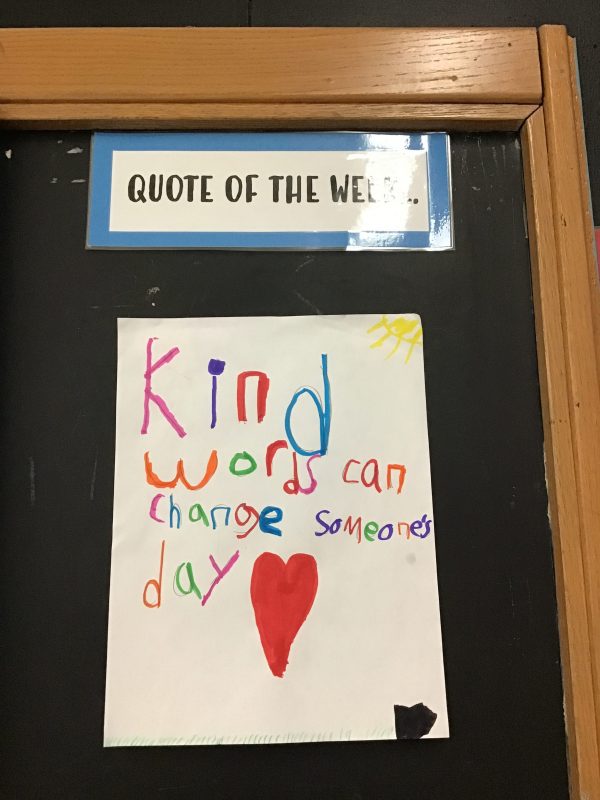 QUOTE OF THE WEEK...
Kind
words can
change someone's
day